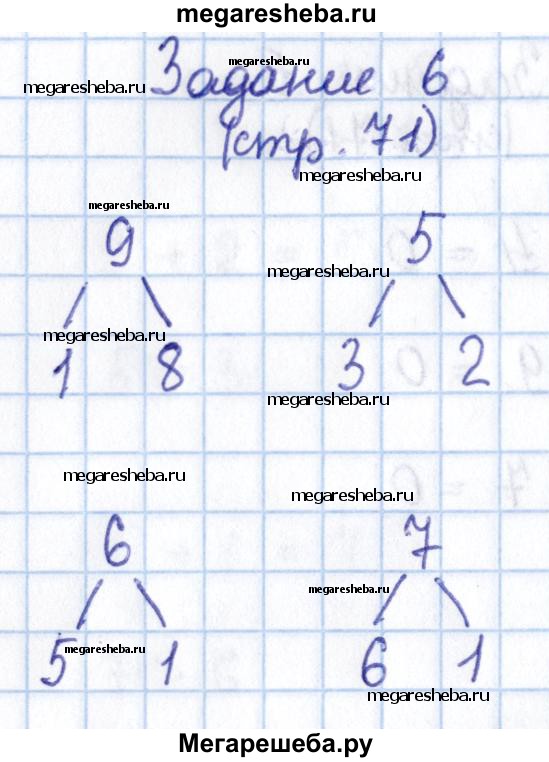 megaresheba.ru
Задание 6
megaresheba.ru
(стр. 71)
megaresheba.ru
megaresheba.ru
9 5
megaresheba.ru
megaresheba.ru
1 8 3 2
megaresheba.ru
megaresheba.ru
megaresheba.ru
6 7
megaresheba.ru
5 1 6 1
megaresheba.ru
megaresheba.ru
Мегарешеба.ру